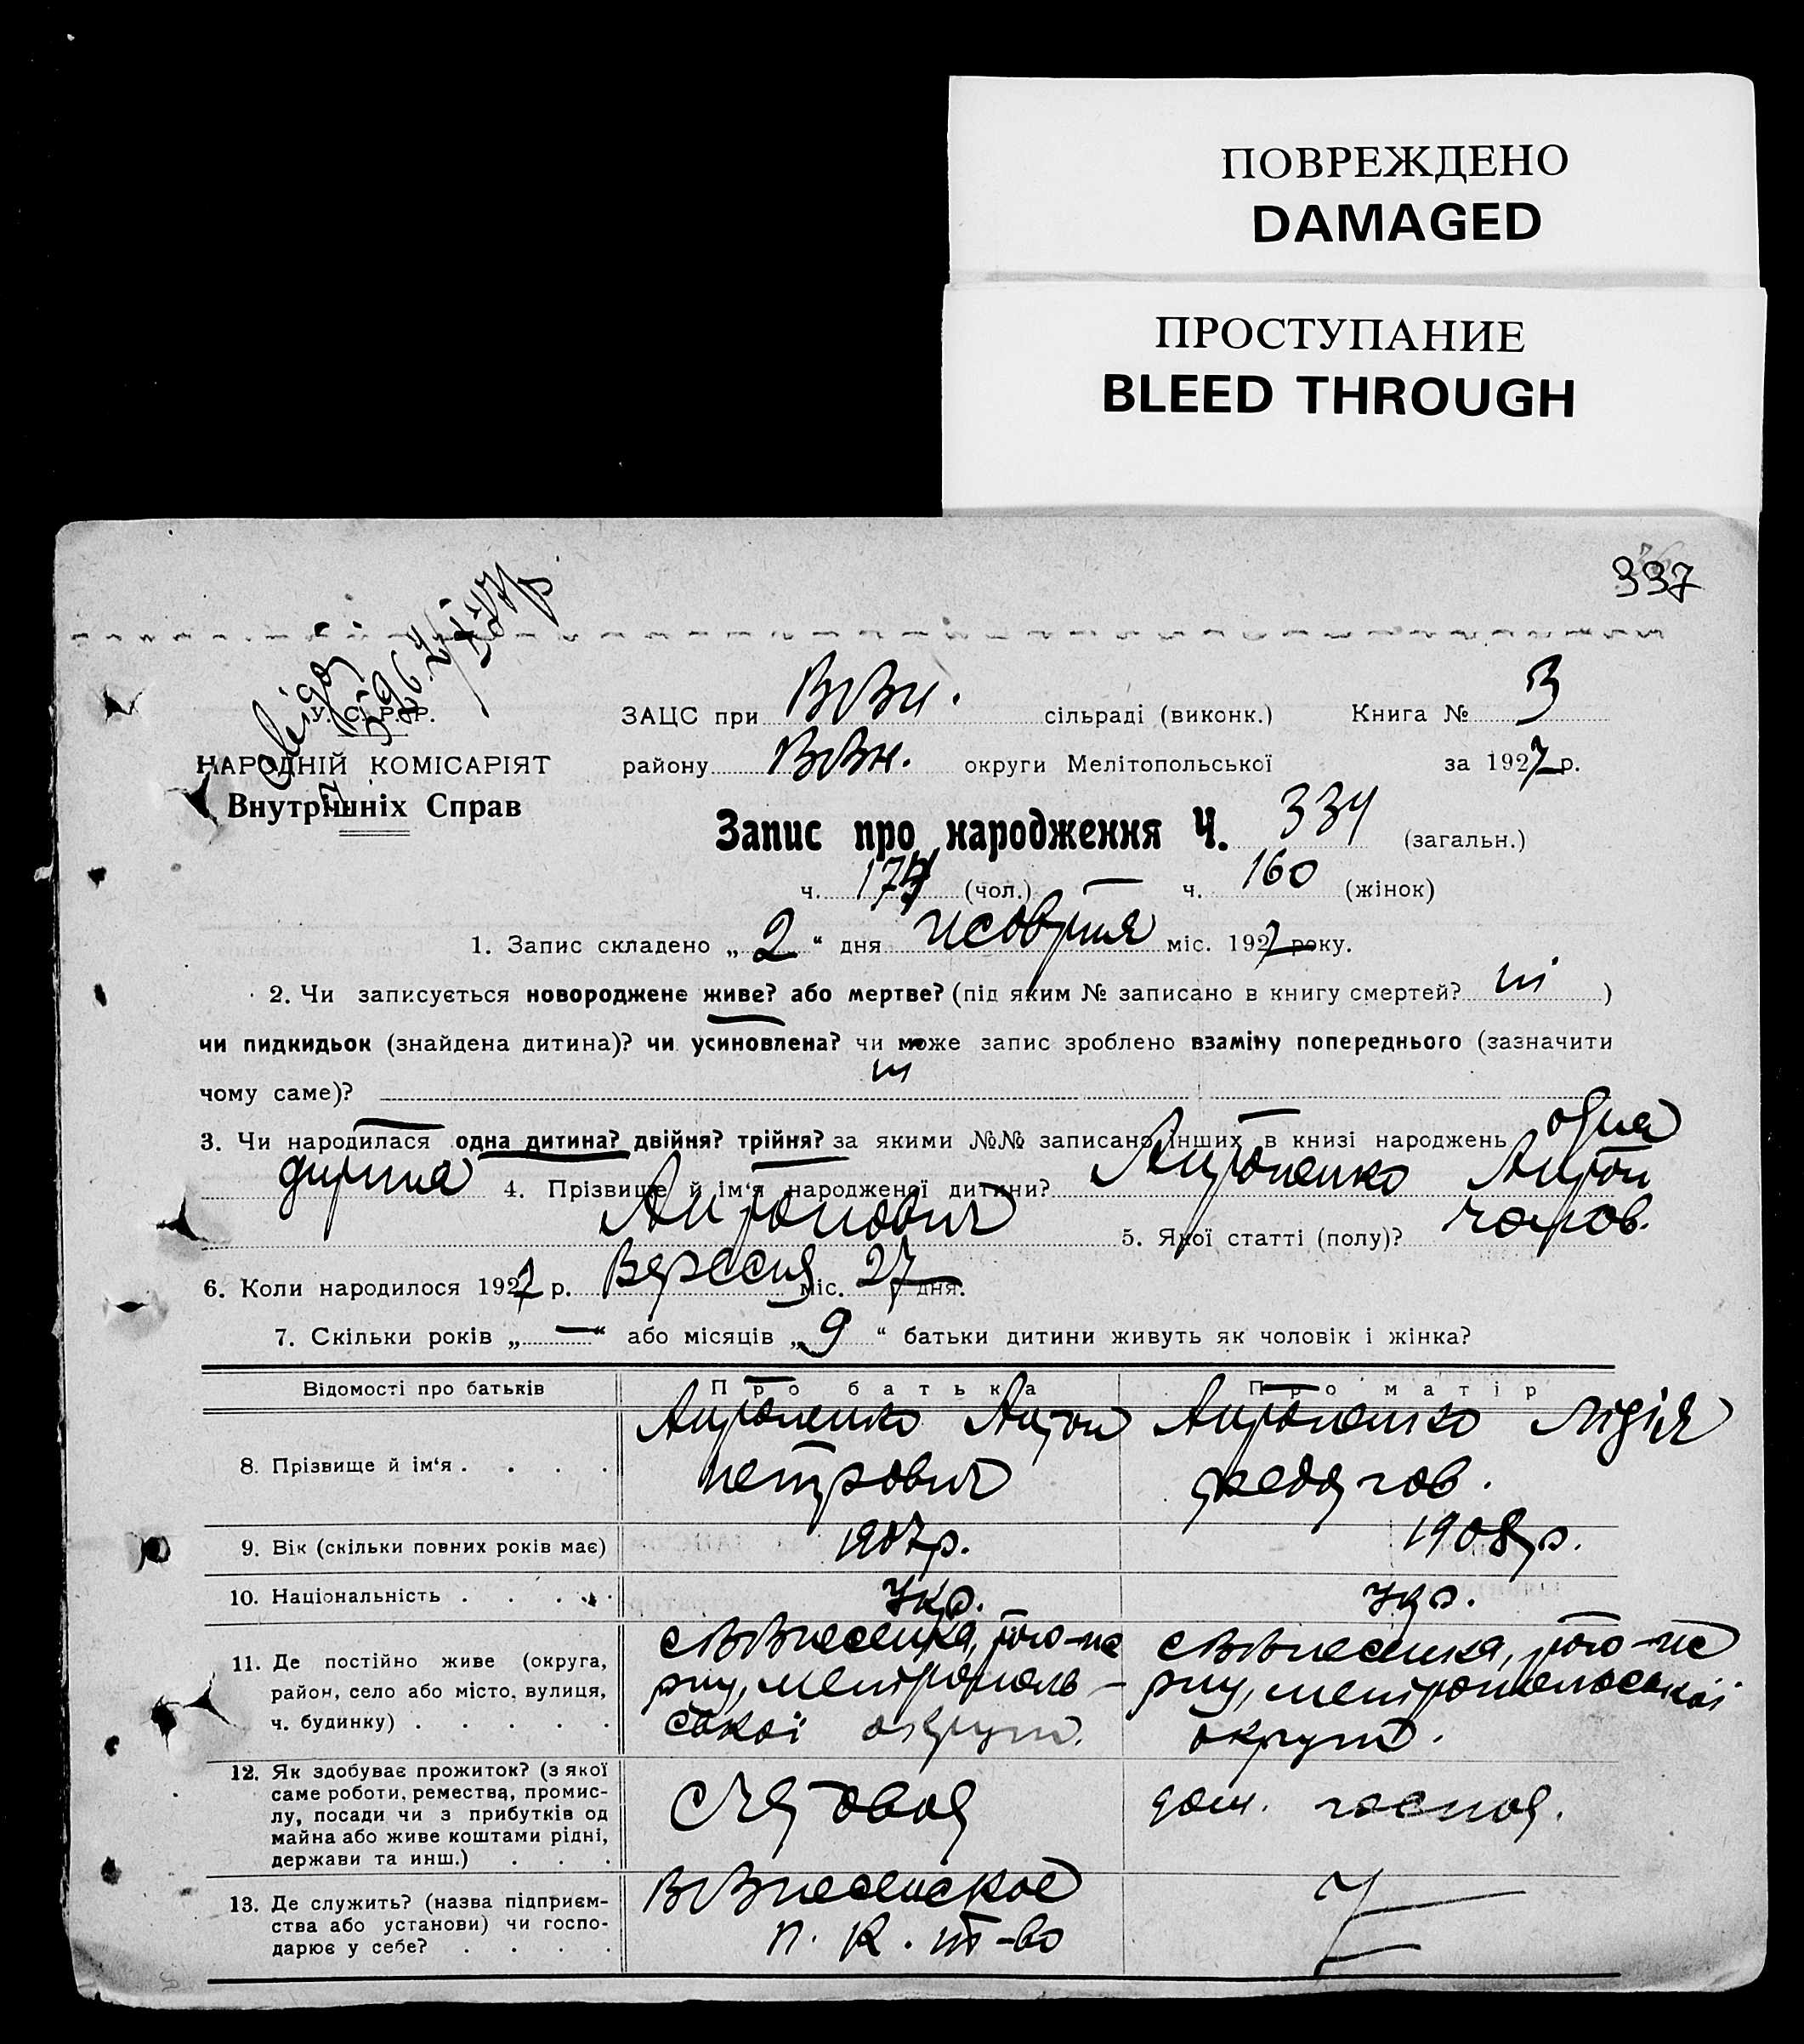 ПОВРЕЖДЕНО
DAMAGED
ПРОСТУПАНИЕ
BLEED THROUGH
337
У. С. Р. Р.
НАРОДНІЙ КОМІСАРІЯТ
Внутрішніх Справ
ЗАЦС при ВВзн. сільраді (виконк.) Книга № 3
району ВВзн. округи Мелітопольської за 1927 р.
Запис про народження Ч. 334 (загальн.)
ч. 174 (чол.) — ч. 160 (жінок)
1. Запис складено „ 2 “ дня жовтня міс. 1927 року.
2. Чи записується новороджене живе? або мертве? (під яким № записано в книгу смертей? ні )
чи пидкидьок (знайдена дитина)? чи усиновлена? чи може запис зроблено взаміну попереднього (зазначити
чому саме)? ні
3. Чи народилася одна дитина? двійня? трійня? за якими №№ записано інших в книзі народжень одна
дитина 4. Прізвище й ім‘я народженої дитини? Антоненко Антон
Антонович 5. Якої статті (полу)? чолов.
6. Коли народилося 1927 р. Вересня міс. 27 дня.
7. Скільки років „ — “ або місяців „ 9 “ батьки дитини живуть як чоловік і жінка?
Відомості про батьків Про батька Про матір
8. Прізвище й ім‘я . . . . Антоненко Антон Петрович Антоненко Лідія Федоров.
9. Вік (скільки повних років має) 1907р. 1908р.
10. Національність . . . . Укр. Укр.
11. Де постійно живе (округа,
район, село або місто, вулиця,
ч. будинку) . . . . .
с ВВнесенка, того-же
р-ну, Мелітополь-
ської округи.
с ВВнесенка, того-же
р-ну, Мелітопольської
округи.
12. Як здобуває прожиток? (з якої
саме роботи, ремества, промис-
лу, посади чи з прибутків од
майна або живе коштами рідні,
держави та инш.) . . .
Счетовод
дом. господ.
13. Де служить? (назва підприєм-
ства або установи) чи госпо-
дарює у себе? . . . .
ВВнесенское
п. к. т-во